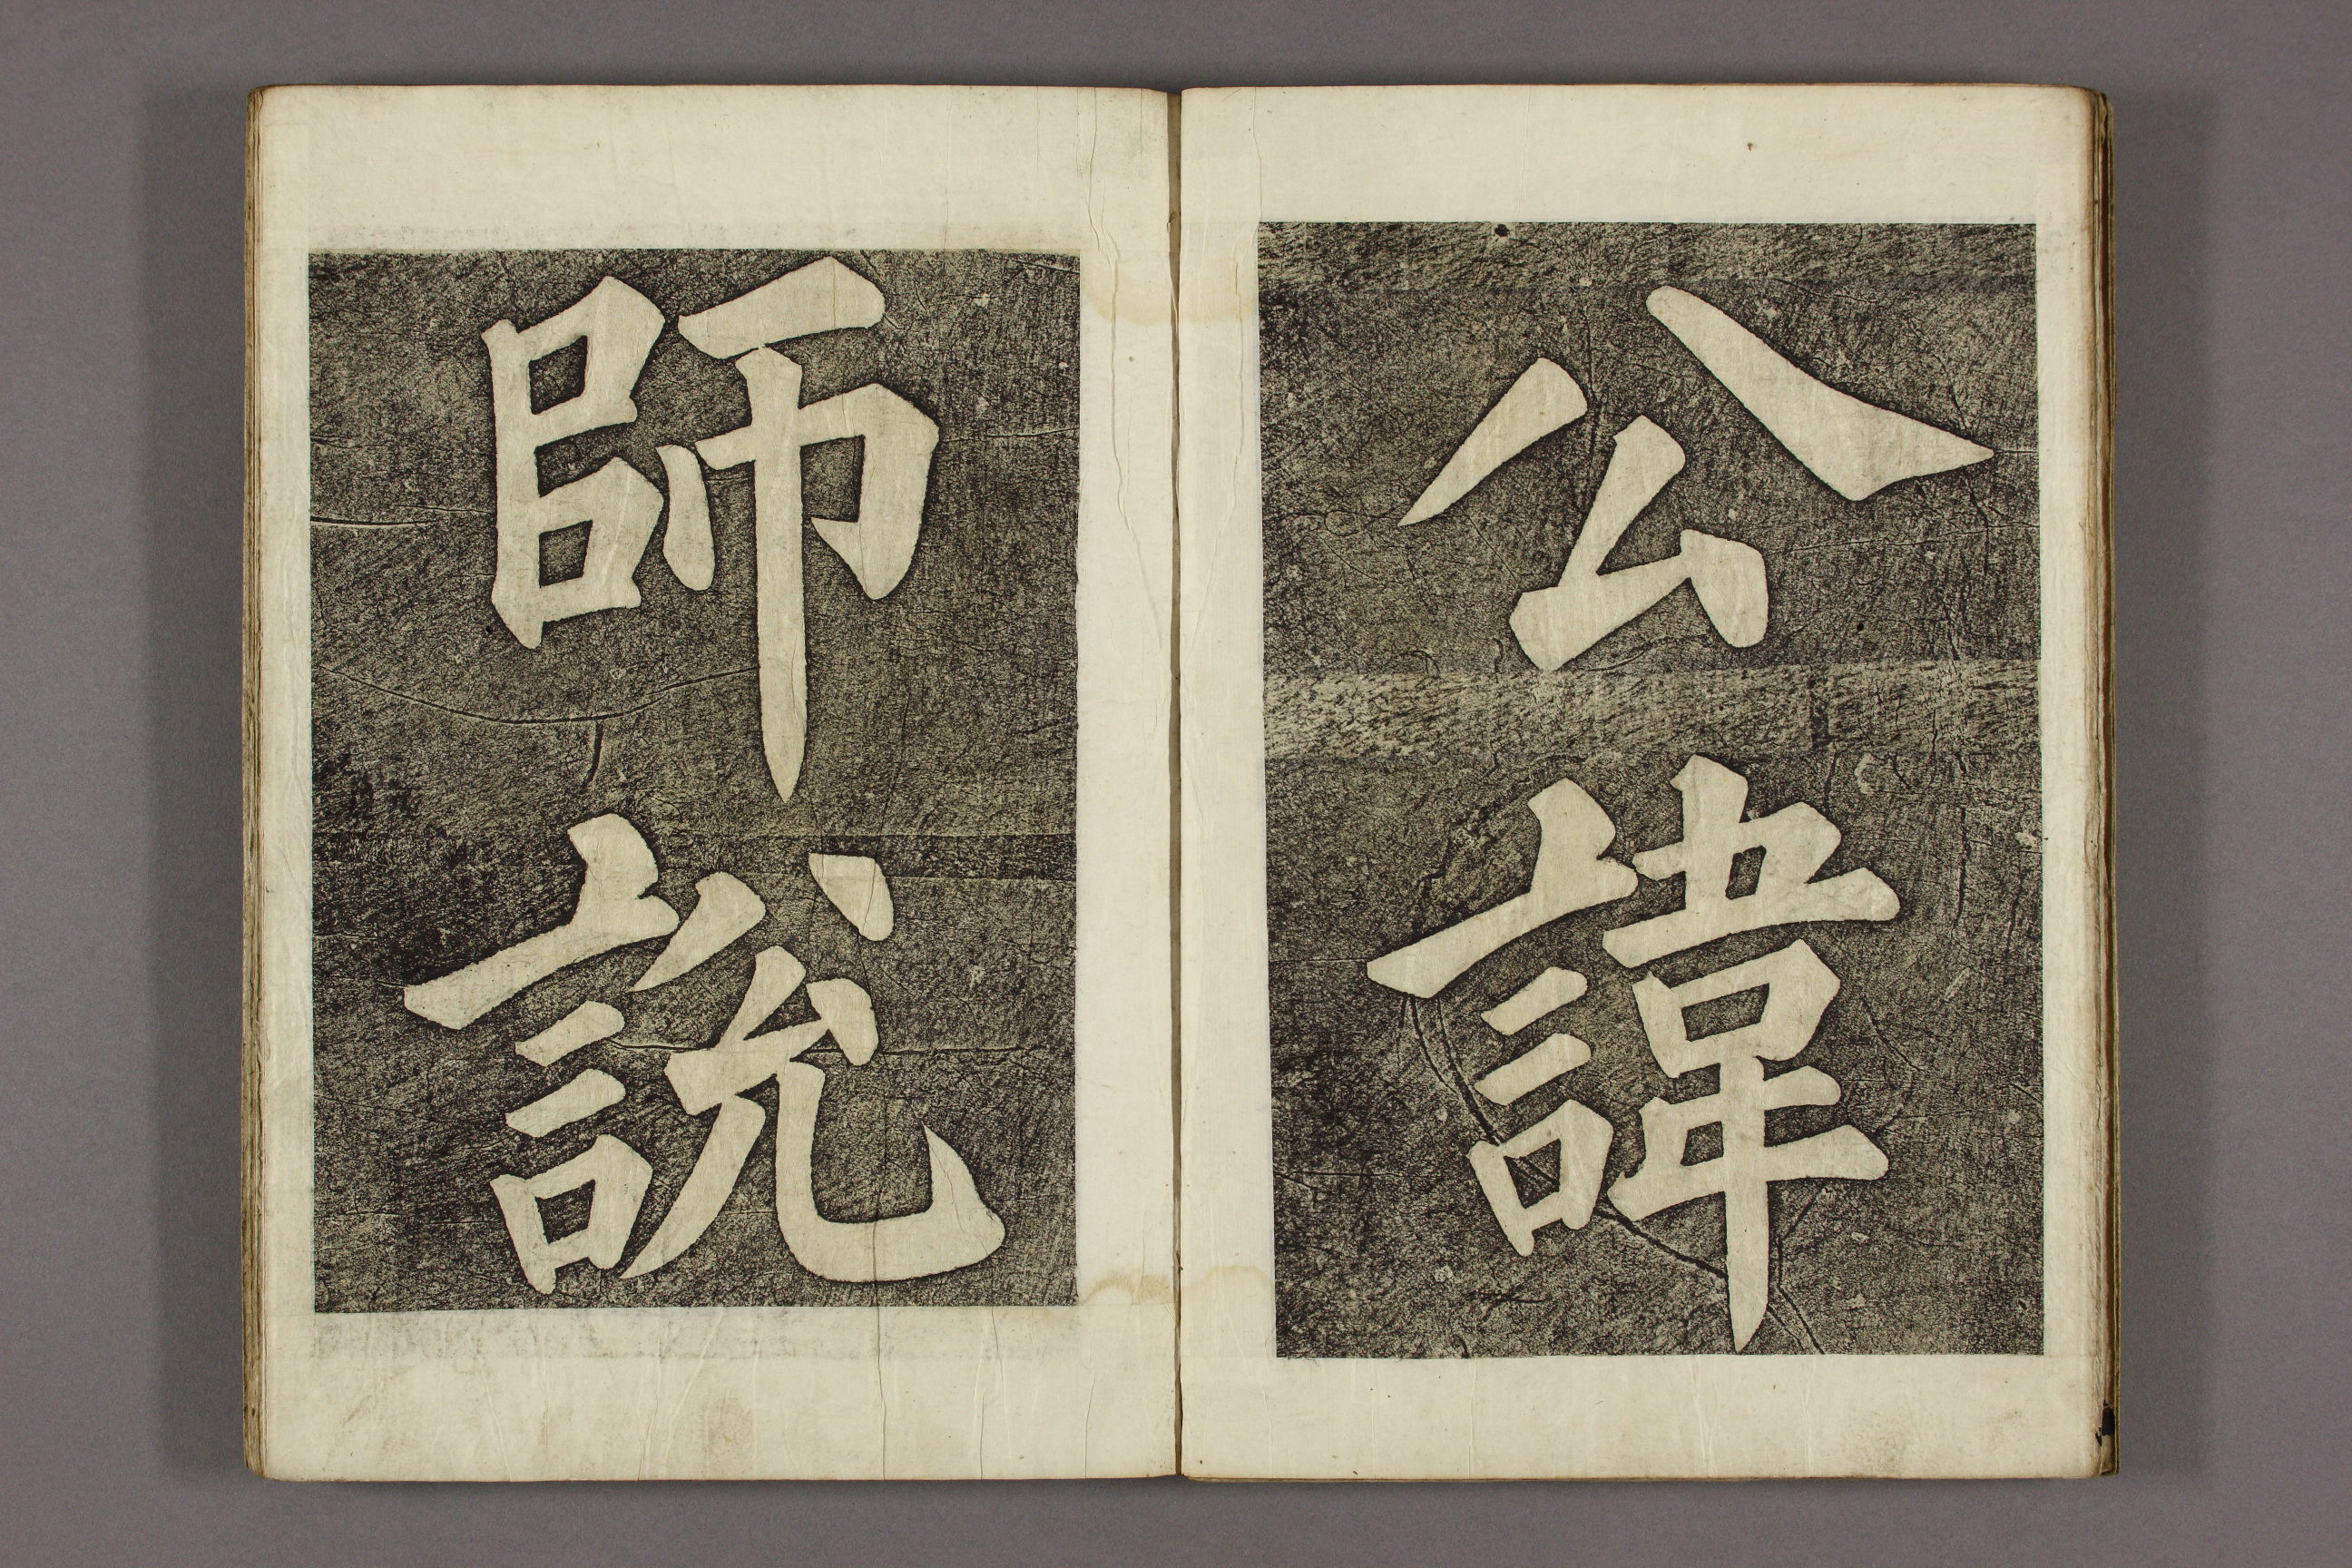 公諱
師說